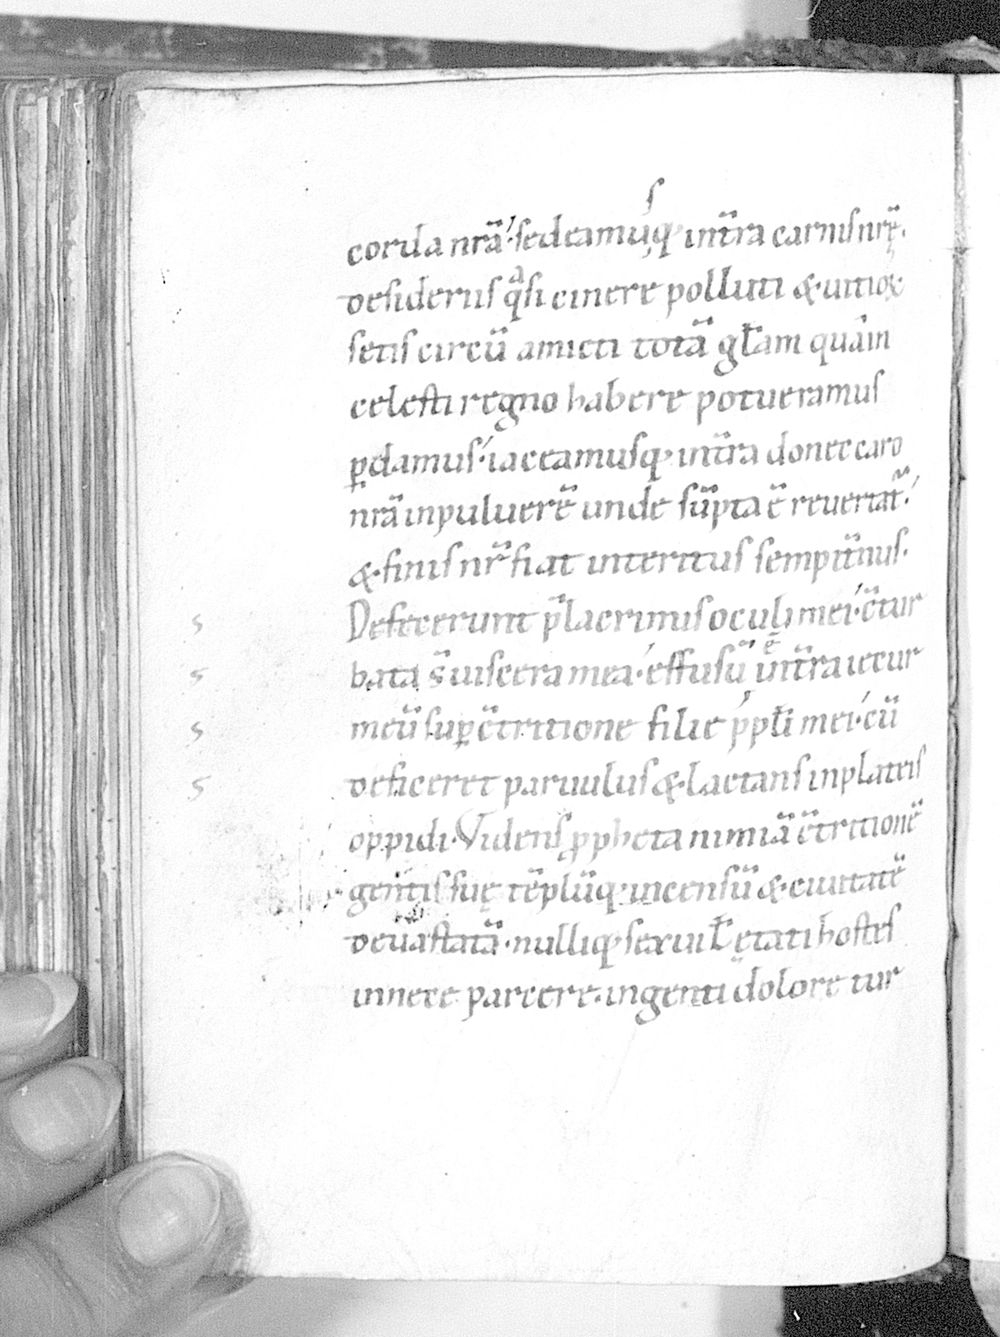 corda nr̄a. sedeamusq; int̄ra carnis nr̄ę.
desideriis q̊si cinere polluti & uitioꝝ
setis circū amicti totā gl̄am quam
celesti regno habere potueramus
ꝑdamus. iaceamusq; int̄ra donec caro
nr̄a inpuluerē unde sūpta ē reuertat̄.
& finis nr̄ fiat interitus sempit̄nus.
s Defecerunt p̄ lacrimis oculi mei. c̄tur
s bata s̄ uiscera mea. effusū ē int̄ra iecur
s meū sup c̄tritione filie ppl̄i mei. cū
s deficeret paruulus & lactans inplateis
oppidi. Videns ꝓpheta nimiā c̄tritionē
gentis suę tēplūq; incensū & ciuitatē
deuastatā. nulliq; sexui ł ętati hostes
innete parcere. ingenti dolore tur